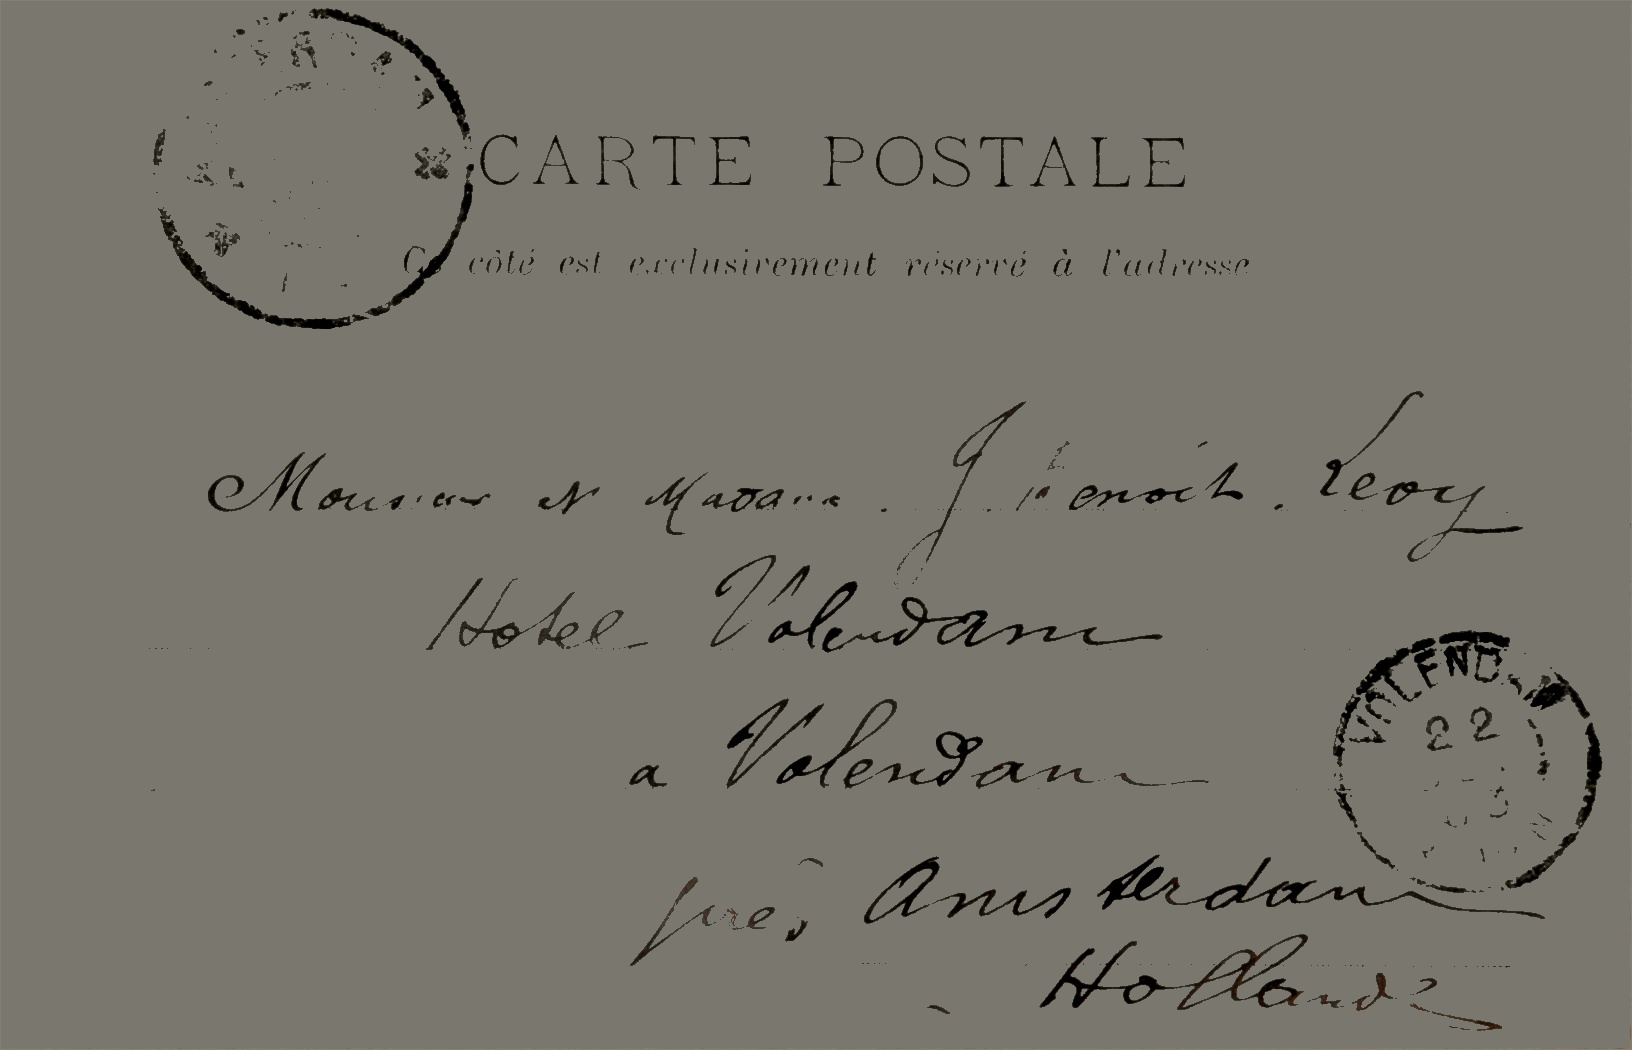 CARTE POSTALE
Ce côté est exclusivement réservé à l'adresse
Monsieur et Madame J. Benoit. Levy
Hotel Volendam
a Volendam
près Amsterdam
Hollande
VOLENDAM
22